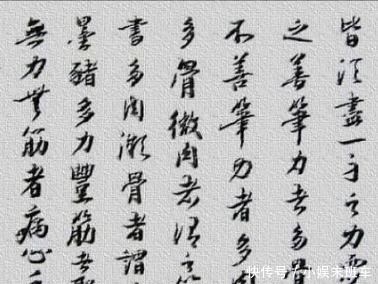 皆須盡一身之力
之善筆力者多骨
不善筆力者多
多骨微肉者謂之筋
書多肉微骨者謂
墨豬多力豐筋者聖
無力無筋者病
快传号/小娱末班车